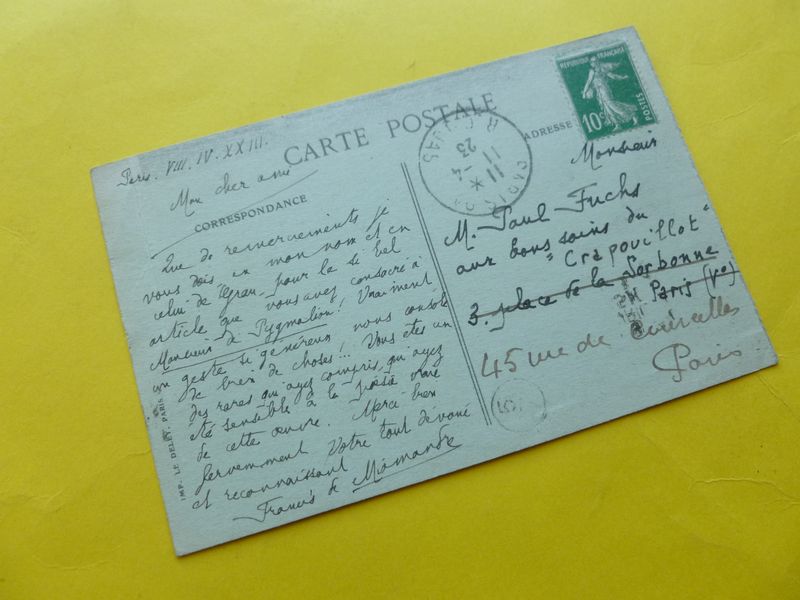 Paris. VIII. IV. XXIII.
CARTE POSTALE
Mon cher ami
CORRESPONDANCE
Que de remerciements je
vous dois, en mon nom et en
celui de pour le si bel
article que vous avez consacré à
Monsieur de Pygmalion! Vraiment
un geste si généreux nous console
de bien de choses... Vous êtes un
des rares qui ayez compris, qui ayez
été sensible à la vraie
de cette œuvre. Merci bien
fervemment Votre tout dévoué
et reconnaissant
Francis de Miomandre
IMP. LE DELEY, PARIS
REPUBLIQUE FRANÇAISE
POSTES
10c
11 * -4
23
ADRESSE
Monsieur
M. Paul Fuchs
aux bons soins du
"Crapouillot"
3. place de la Sorbonne
Paris (Ve)
45 rue de
Paris